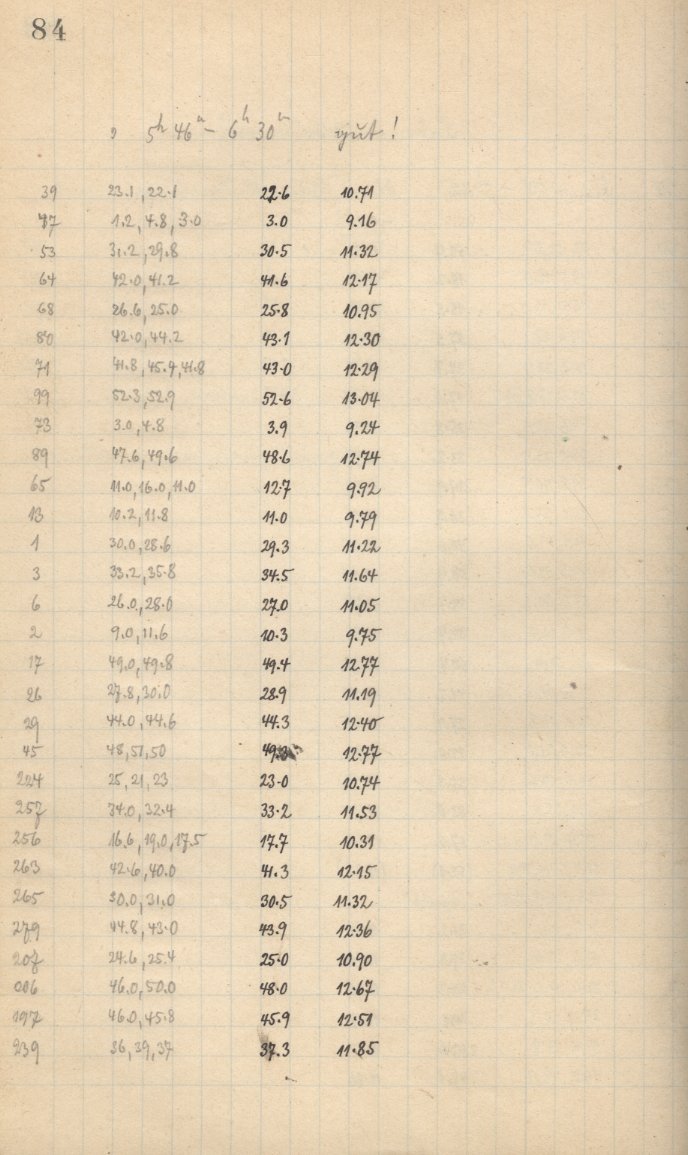 84
5h 46m – 6h 30m gut!
39 23.1, 22.1 22.6 10.71
47 1.2, 4.8, 3.0 3.0 9.16
53 31.2, 29.8 30.5 11.32
64 42.0, 41.2 41.6 12.17
68 26.6, 25.0 25.8 10.95
80 42.0, 44.2 43.1 12.30
71 41.8, 45.4, 41.8 43.0 12.29
99 52.3, 52.9 52.6 13.04
73 3.0, 4.8 3.9 9.24
89 47.6, 49.6 48.6 12.74
65 11.0, 16.0, 11.0 12.7 9.92
13 10.2, 11.8 11.0 9.79
1 30.0, 28.6 29.3 11.22
3 33.2, 35.8 34.5 11.64
6 26.0, 28.0 27.0 11.05
2 9.0, 11.6 10.3 9.75
17 49.0, 49.8 49.4 12.77
26 27.8, 30.0 28.9 11.19
29 44.0, 44.6 44.3 12.40
45 48, 51, 50 12.77
224 25, 21, 23 23.0 10.74
257 34.0, 32.4 33.2 11.53
256 16.6, 19.0, 17.5 17.7 10.31
263 42.6, 40.0 41.3 12.15
265 30.0, 31.0 30.5 11.32
279 44.8, 43.0 43.9 12.36
207 24.6, 25.4 25.0 10.90
46.0, 50.0 48.0 12.67
197 46.0, 45.8 45.9 12.51
239 36, 39, 37 37.3 11.85